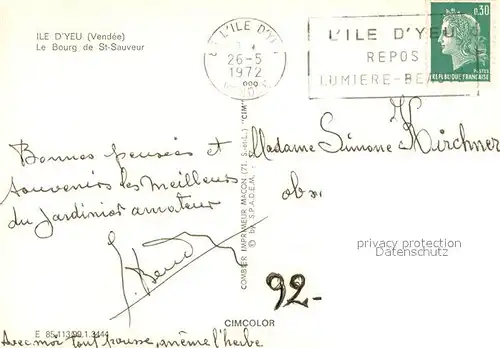 ILE D'YEU (Vendée)
Le Bourg de St-Sauveur
L'ILE D'YEU
26-5
1972
L'ILE D'YEU
REPOS
LUMIERE-BEAUTE
0,30
POSTES
REPUBLIQUE FRANÇAISE
Bonnes pensées et
souvenirs les meilleurs
du Jardinier amateur
Madame Simone Kirchner
COMBIER IMPRIMEUR MACON (71, S.-et-L.) "CIM"
© by S.P.A.D.E.M.
privacy protection
Datenschutz
92.-
CIMCOLOR
E 85.113.00.1.3444
Avec moi tout pousse, même l'herbe